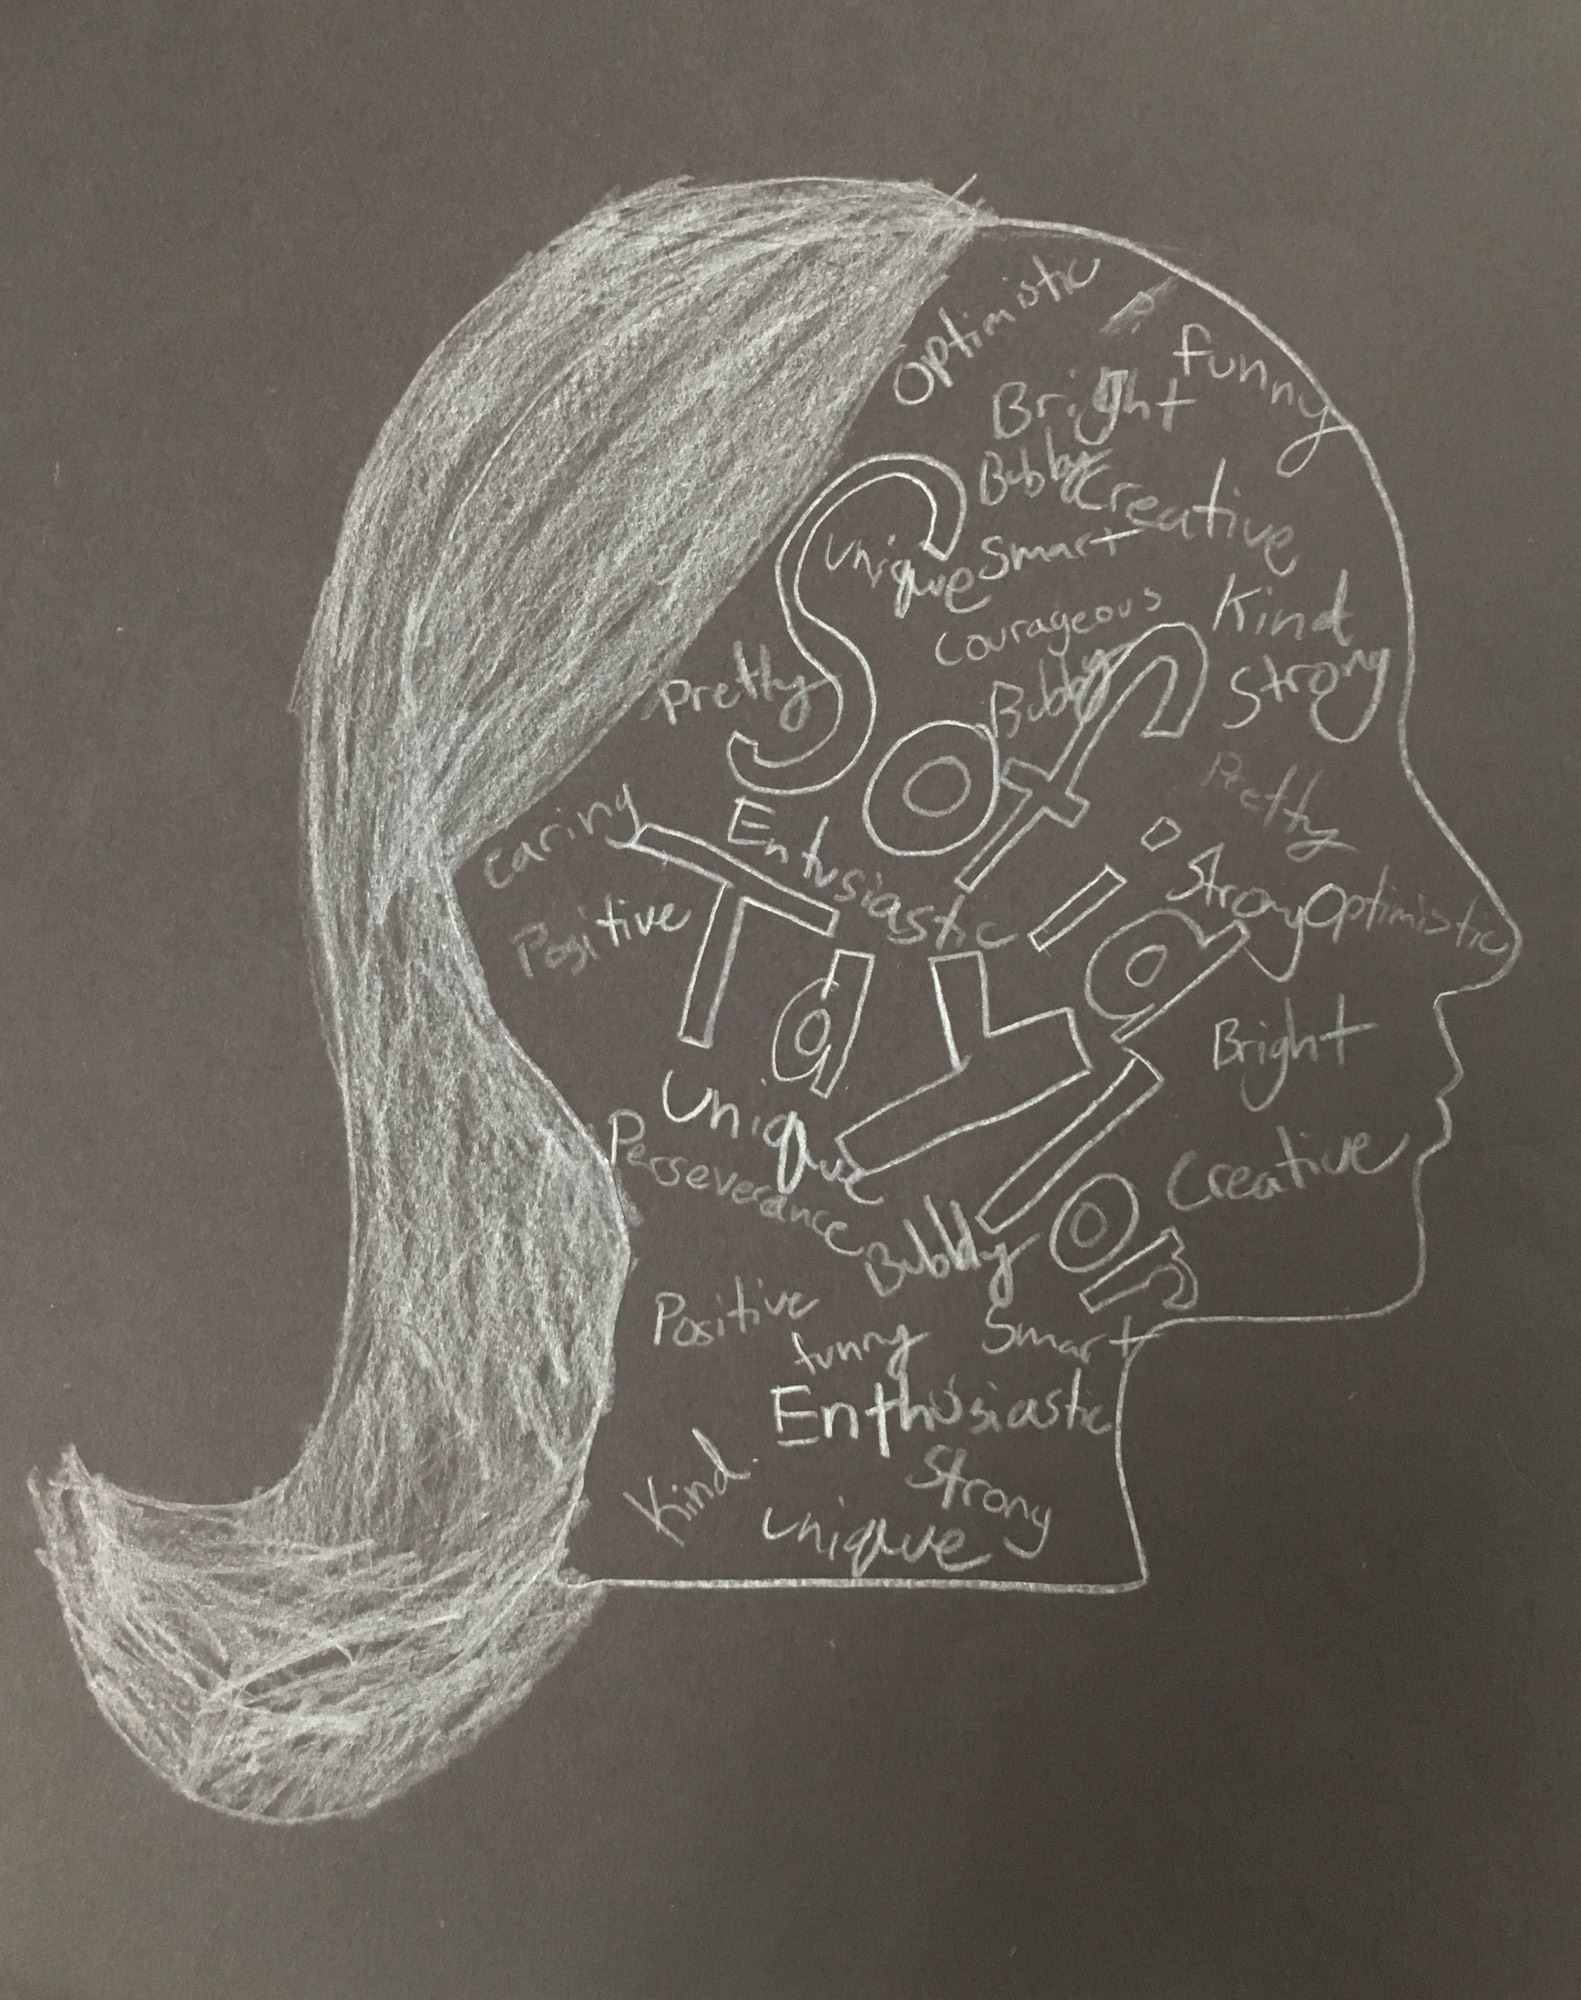 Optimistic
funny
Bright
Bubbly
Creative
Unique
Smart
Courageous
Kind
Pretty
Bubbly
Strong
Sofia
Pretty
Caring
Entusiastic
Strong
Optimistic
Positive
Taylor
Bright
Unique
Perseverance
Creative
Bubbly
Positive
funny
Smart
Enthusiastic
Kind.
Strong
Unique